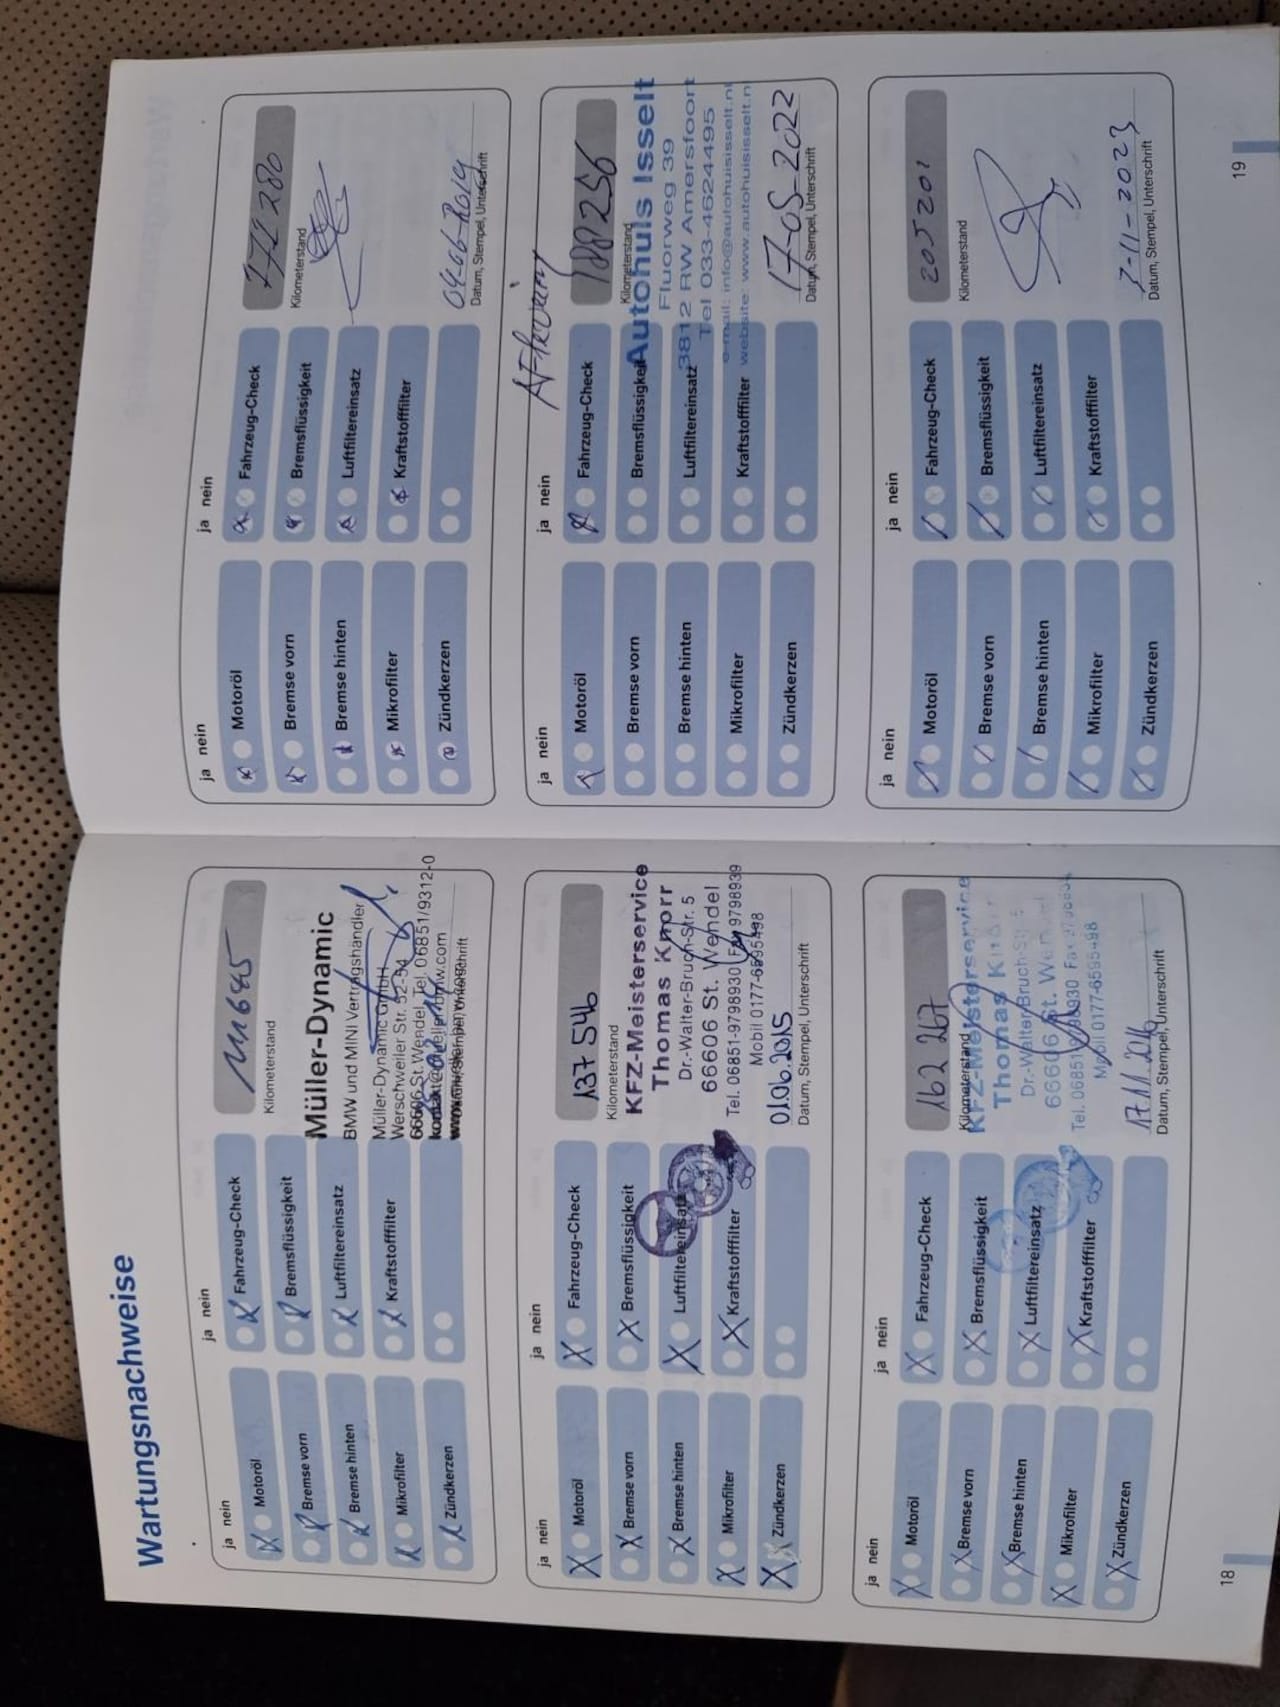 Wartungsnachweise
ja nein
ja nein
Motoröl
Fahrzeug-Check
111685
Bremse vorn
Bremsflüssigkeit
Kilometerstand
Bremse hinten
Luftfiltereinsatz
Mikrofilter
Kraftstofffilter
Zündkerzen
Müller-Dynamic
BMW und MINI Vertragshändler
Müller-Dynamic GmbH
Werschweiler Str. 52-54
66606 St. Wendel, Tel. 06851/9312-0
Datum, Stempel, Unterschrift
ja nein
ja nein
Motoröl
Fahrzeug-Check
137 546
Bremse vorn
Bremsflüssigkeit
Kilometerstand
Bremse hinten
Luftfiltereinsatz
Mikrofilter
Kraftstofffilter
Zündkerzen
KFZ-Meisterservice
Thomas Knorr
Dr.-Walter-Bruch-Str. 5
66606 St. Wendel
Tel. 06851-9798930 Fax 9798939
Mobil 0177-6595498
01.06.2015
Datum, Stempel, Unterschrift
ja nein
ja nein
Motoröl
Fahrzeug-Check
162 267
Bremse vorn
Bremsflüssigkeit
Kilometerstand
Bremse hinten
Luftfiltereinsatz
Mikrofilter
Kraftstofffilter
Zündkerzen
KFZ-Meisterservice
Thomas Knorr
Dr.-Walter-Bruch-Str. 5
66606 St. Wendel
Tel. 06851-9798930 Fax 9798939
Mobil 0177-6595498
17.11.2016
Datum, Stempel, Unterschrift
18
ja nein
ja nein
Motoröl
Fahrzeug-Check
172 280
Bremse vorn
Bremsflüssigkeit
Kilometerstand
Bremse hinten
Luftfiltereinsatz
Mikrofilter
Kraftstofffilter
Zündkerzen
04-06-2019
Datum, Stempel, Unterschrift
Aflevering
ja nein
ja nein
Motoröl
Fahrzeug-Check
188256
Bremse vorn
Bremsflüssigkeit
Kilometerstand
Bremse hinten
Luftfiltereinsatz
Mikrofilter
Kraftstofffilter
Zündkerzen
Autohuis Isselt
Fluorweg 39
3812 RW Amersfoort
Tel 033-4624495
e-mail: info@autohuisisselt.nl
website: www.autohuisisselt.nl
17-05-2022
Datum, Stempel, Unterschrift
ja nein
ja nein
Motoröl
Fahrzeug-Check
205201
Bremse vorn
Bremsflüssigkeit
Kilometerstand
Bremse hinten
Luftfiltereinsatz
Mikrofilter
Kraftstofffilter
Zündkerzen
7-11-2023
Datum, Stempel, Unterschrift
19